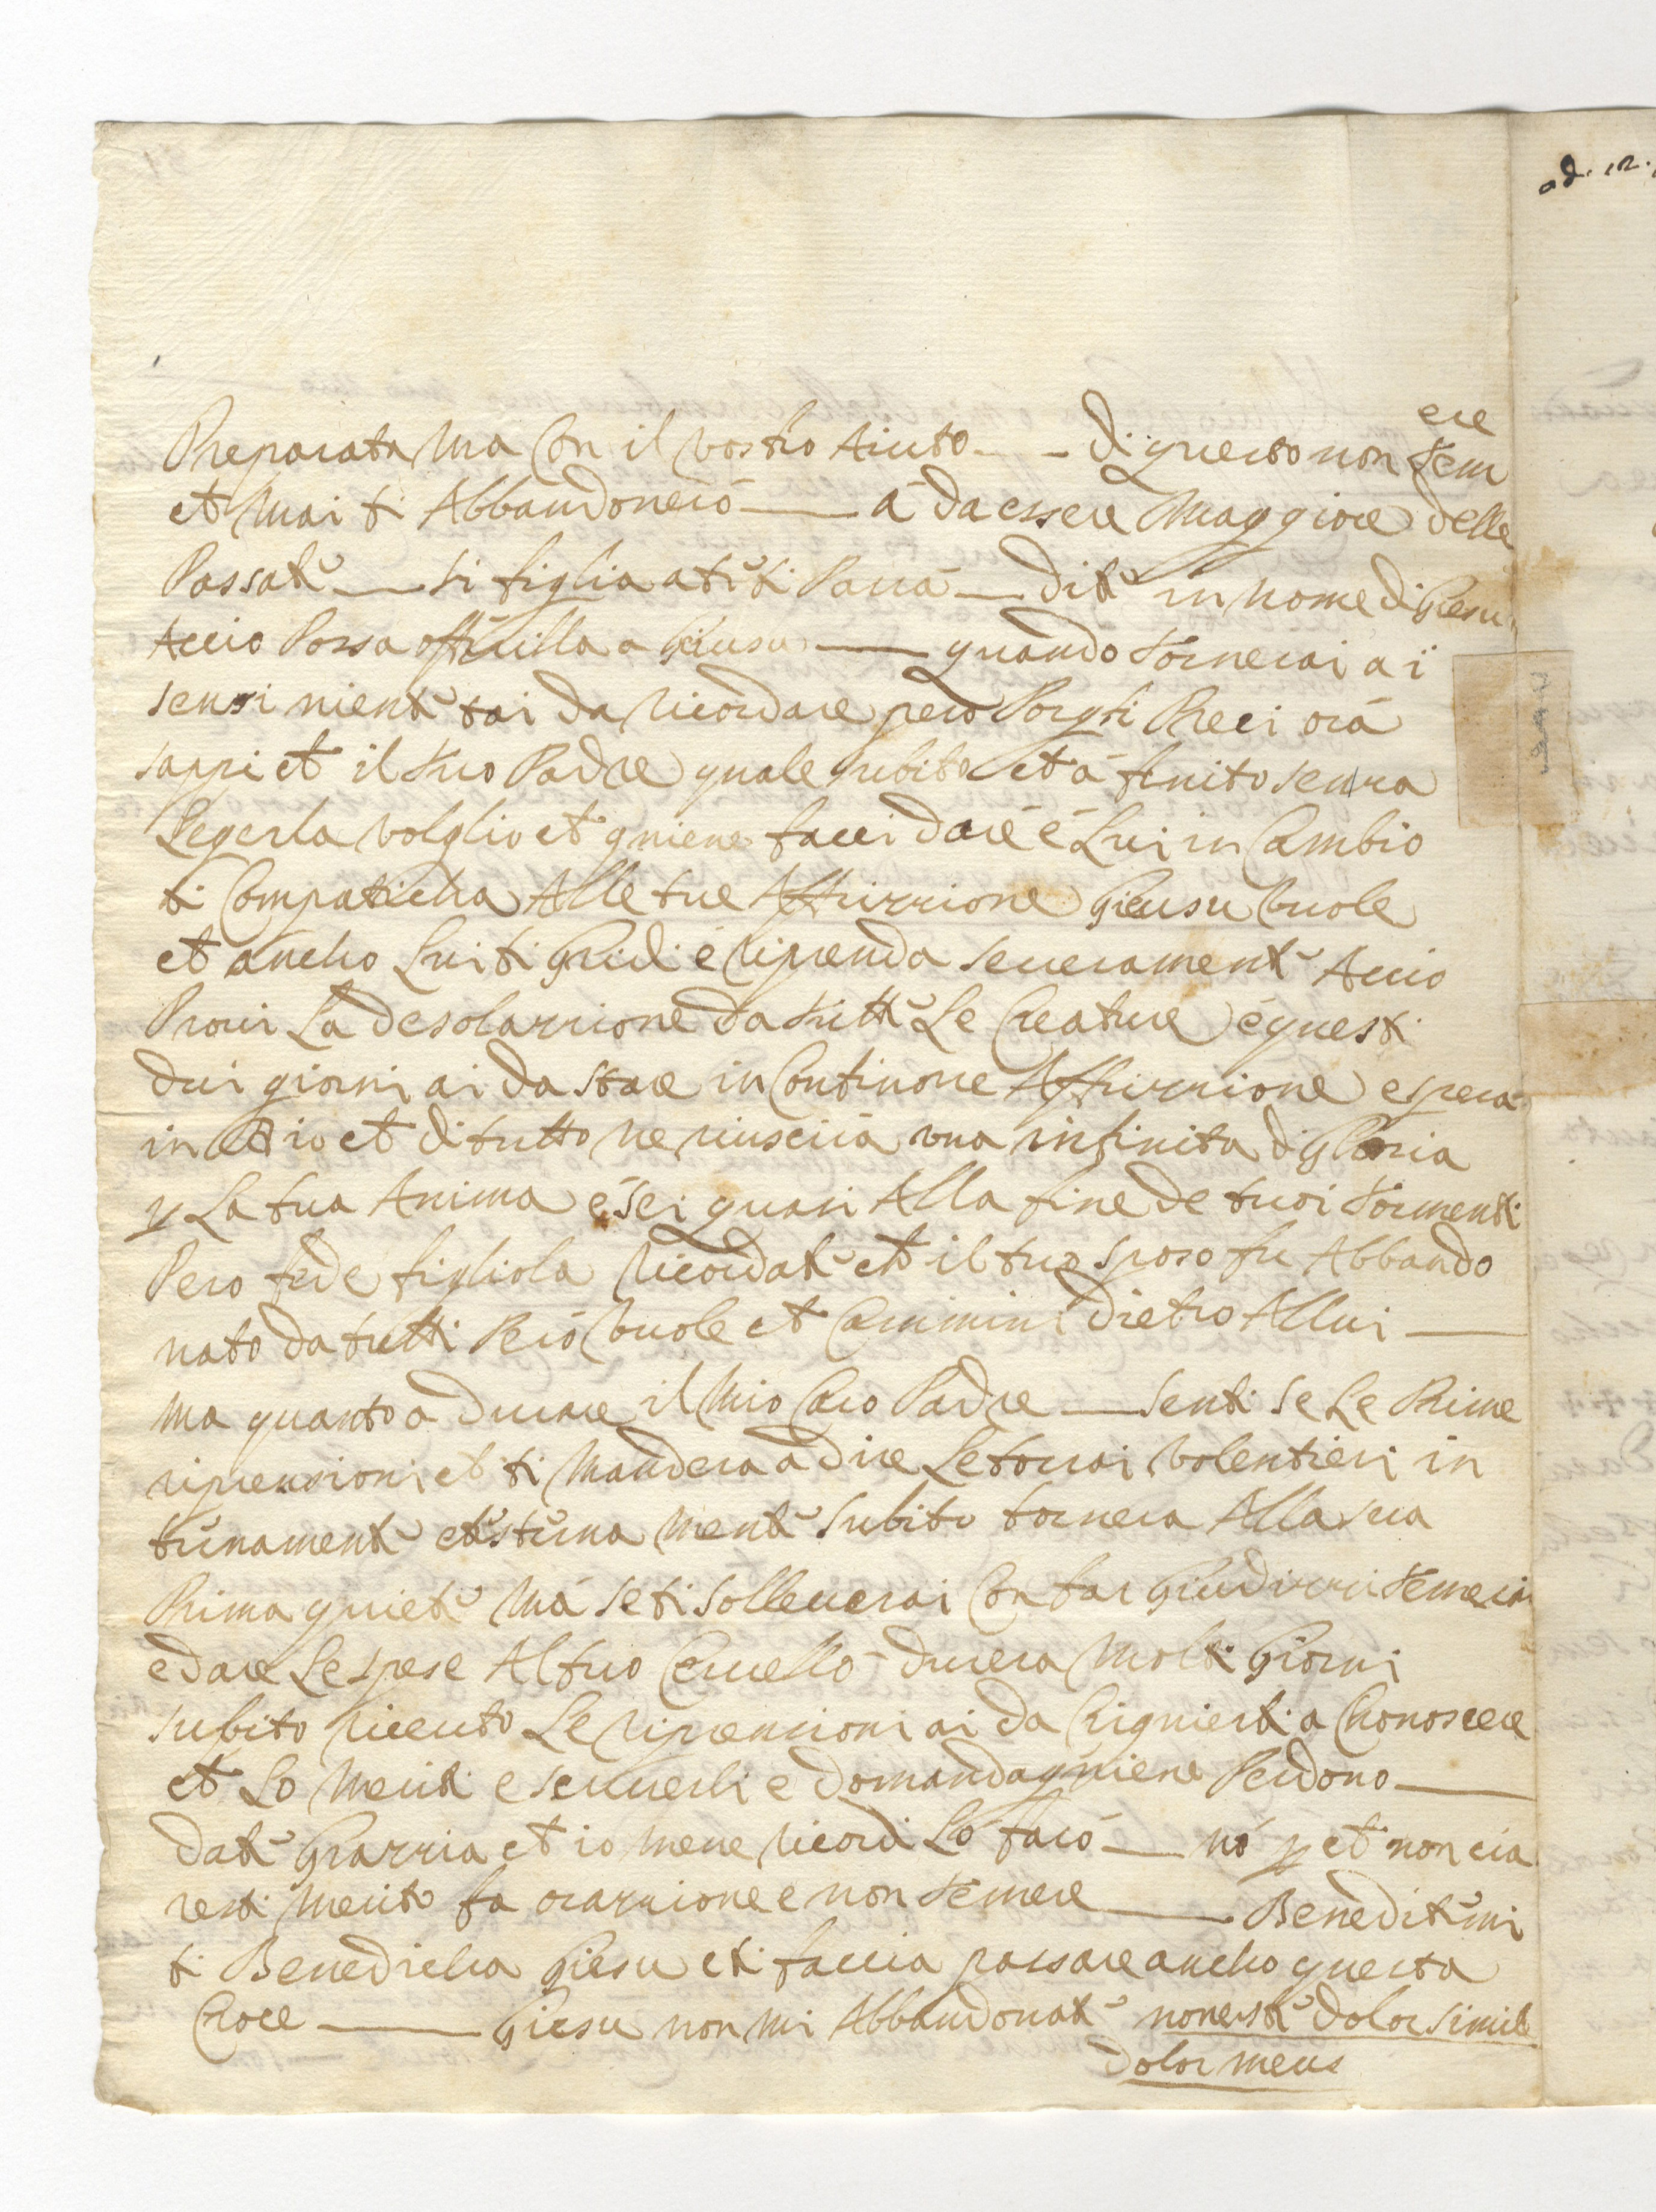 ad. 12.
Preparata ma Con il vostro Aiuto - - di questo non tem
ere
et mai ti Abbandonerò — à da essere Maggiore delle
Passate — si figlia a tutti Parrà — dite in nome di Giesu
Accio Possa offrirlla a Giusu — quando tornerai a i
sensi niente tai da ricordare però Porgti Preci orà
sappi et il tuo Padre quale subito et à finito senza
Legerla volglio et gniene facci dare é Lui in Cambio
ti Compaticha Alle tue Affrizzione Gieusu Vuole
et ancho Lui ti Gridi é riprenda seueramente Accio
Proui La desolazzione da tutte Le Creature é questi
dui giorni ai da stare in Continoue Affrizzione e spera
in et io et di tutto ne riuscirà una infinita di gloria
p La tua Anima é sei quasi Alla fine de tuoi tormenti
Pero fede figliola ricordate et il tuo sposo fu Abbando
nato da tutti Però Vuole et Cammini dietro Allui —
ma quanto a durare il mio Caro Padre — senti se Le Prime
riprensioni et ti Mandera a dire Le torrai volentieri in
ternamente et sterna mente subito tornera Alla sua
Prima quiete Má se ti solleuerai Con far Giudizzi temera
e dare Le spese Al tuo Ceruello durera molti Giorni
subito riceuto Le riprensioni ai da Chignierti a Chonoscere
et Lo meriti e scriuerli e domandagniene Perdono —
date Grazzia et io mene ricordi Lo farò — nó p et non cia
resti merito fa orazzione e non temere — Beneditemi
ti Benedicha Giesu et ti faccia passare ancho questa
Croce — Giesu non mi Abbandonate non este dolor simile
dolor meus